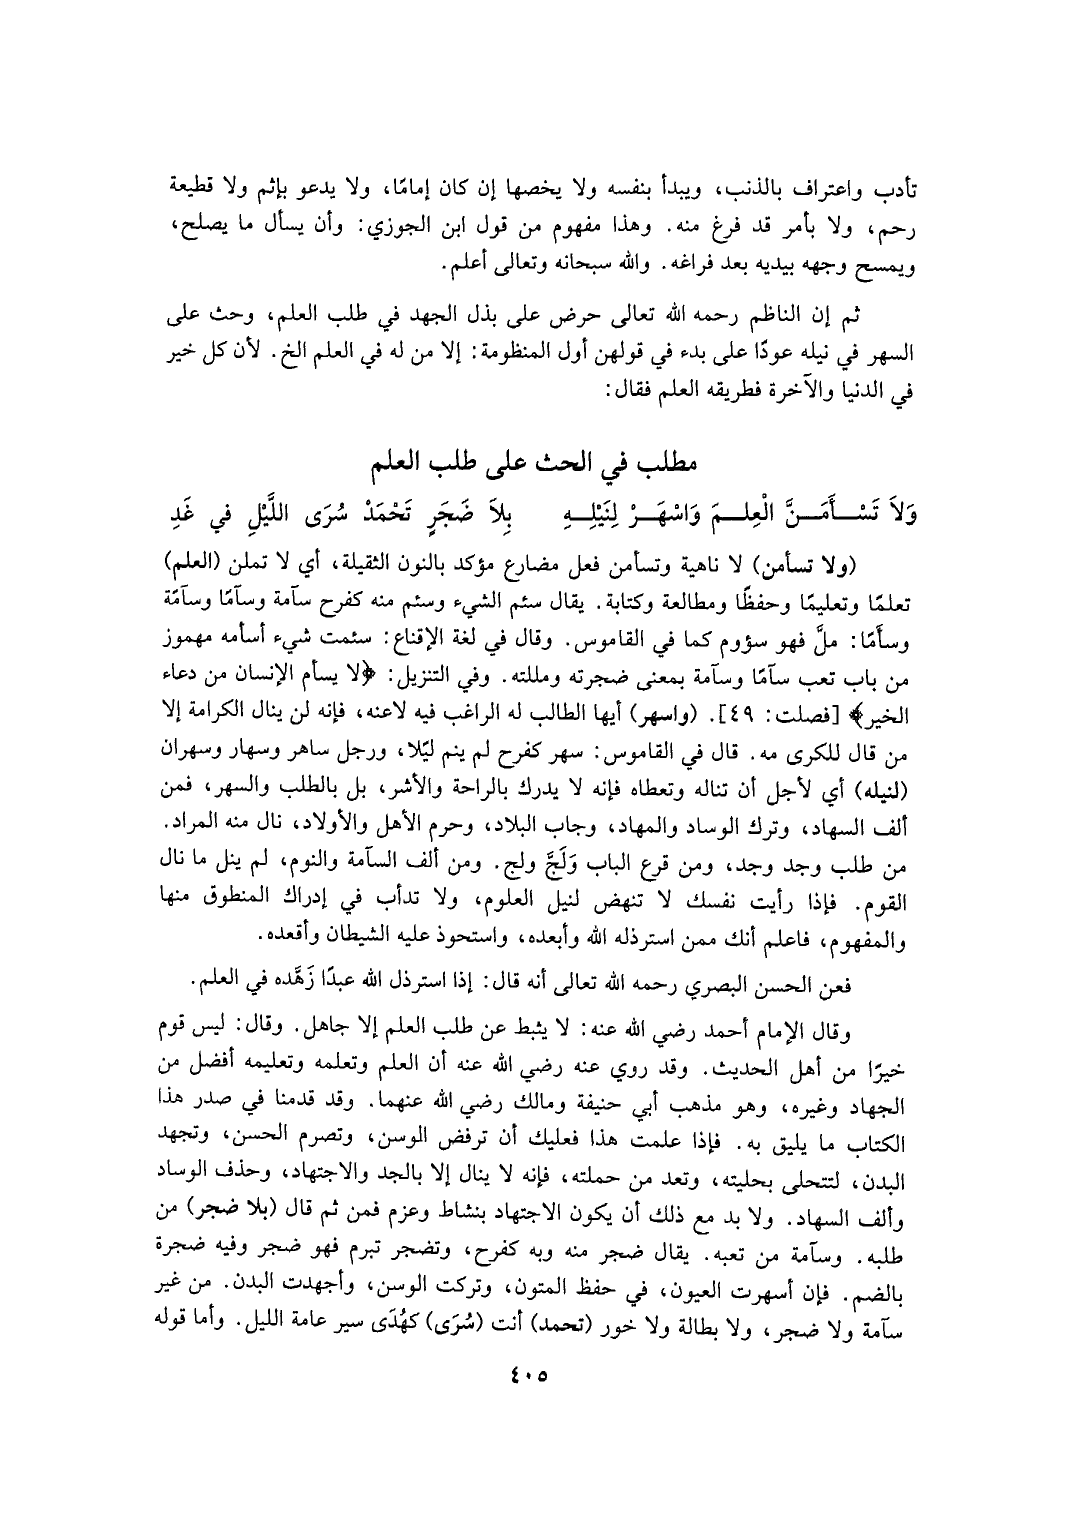 تأدب واعتراف بالذنب، ويبدأ بنفسه ولا يخصها إن كان إمامًا، ولا يدعو بإثم ولا قطيعة
رحم، ولا بأمر قد فرغ منه. وهذا مفهوم من قول ابن الجوزي: وأن يسأل ما يصلح،
ويمسح وجهه بيديه بعد فراغه. والله سبحانه وتعالى أعلم.
ثم إن الناظم رحمه الله تعالى حرض على بذل الجهد في طلب العلم، وحث على
السهر في نيله عودًا على بدء في قولهن أول المنظومة: إلا من له في العلم الخ. لأن كل خير
في الدنيا والآخرة فطريقه العلم فقال:
مطلب في الحث على طلب العلم
وَلاَ تَسْـأَمَـنَّ الْعِلـمَ وَاسْهَـرْ لِنَيْلِـهِ بِلاَ ضَجَرٍ تَحْمَدْ سُرَى اللَّيْلِ في غَدِ
(ولا تسأمن) لا ناهية وتسأمن فعل مضارع مؤكد بالنون الثقيلة، أي لا تملن (العلم)
تعلمًا وتعليمًا وحفظًا ومطالعة وكتابة. يقال سئم الشيء وسئم منه كفرح سآمة وسآمًا وسآمًة
وسأمًا: ملَّ فهو سؤوم كما في القاموس. وقال في لغة الإقناع: سئمت شيء أسأمه مهموز
من باب تعب سآمًا وسآمة بمعنى ضجرته ومللته. وفي التنزيل: ﴿لا يسأم الإنسان من دعاء
الخير﴾ [فصلت: ٤٩]. (واسهر) أيها الطالب له الراغب فيه لاعنه، فإنه لن ينال الكرامة إلا
من قال للكرى مه. قال في القاموس: سهر كفرح لم ينم ليًلا، ورجل ساهر وسهار وسهران
(لنيله) أي لأجل أن تناله وتعطاه فإنه لا يدرك بالراحة والأشر، بل بالطلب والسهر، فمن
ألف السهاد، وترك الوساد والمهاد، وجاب البلاد، وحرم الأهل والأولاد، نال منه المراد.
من طلب وجد وجد، ومن قرع الباب وَلَجَّ ولج. ومن ألف السآمة والنوم، لم ينل ما نال
القوم. فإذا رأيت نفسك لا تنهض لنيل العلوم، ولا تدأب في إدراك المنطوق منها
والمفهوم، فاعلم أنك ممن استرذله الله وأبعده، واستحوذ عليه الشيطان وأقعده.
فعن الحسن البصري رحمه الله تعالى أنه قال: إذا استرذل الله عبدًا زَهَّده في العلم.
وقال الإمام أحمد رضي الله عنه: لا يثبط عن طلب العلم إلا جاهل. وقال: ليس قوم
خيرًا من أهل الحديث. وقد روي عنه رضي الله عنه أن العلم وتعلمه وتعليمه أفضل من
الجهاد وغيره، وهو مذهب أبي حنيفة ومالك رضي الله عنهما. وقد قدمنا في صدر هذا
الكتاب ما يليق به. فإذا علمت هذا فعليك أن ترفض الوسن، وتصرم الحسن، وتجهد
البدن، لتتحلى بحليته، وتعد من حملته، فإنه لا ينال إلا بالجد والاجتهاد، وحذف الوساد
وألف السهاد. ولا بد مع ذلك أن يكون الاجتهاد بنشاط وعزم فمن ثم قال (بلا ضجر) من
طلبه. وسآمة من تعبه. يقال ضجر منه وبه كفرح، وتضجر تبرم فهو ضجر وفيه ضجرة
بالضم. فإن أسهرت العيون، في حفظ المتون، وتركت الوسن، وأجهدت البدن. من غير
سآمة ولا ضجر، ولا بطالة ولا خور (تحمد) أنت (سُرَى) كهُدَى سير عامة الليل. وأما قوله
٤٠٥